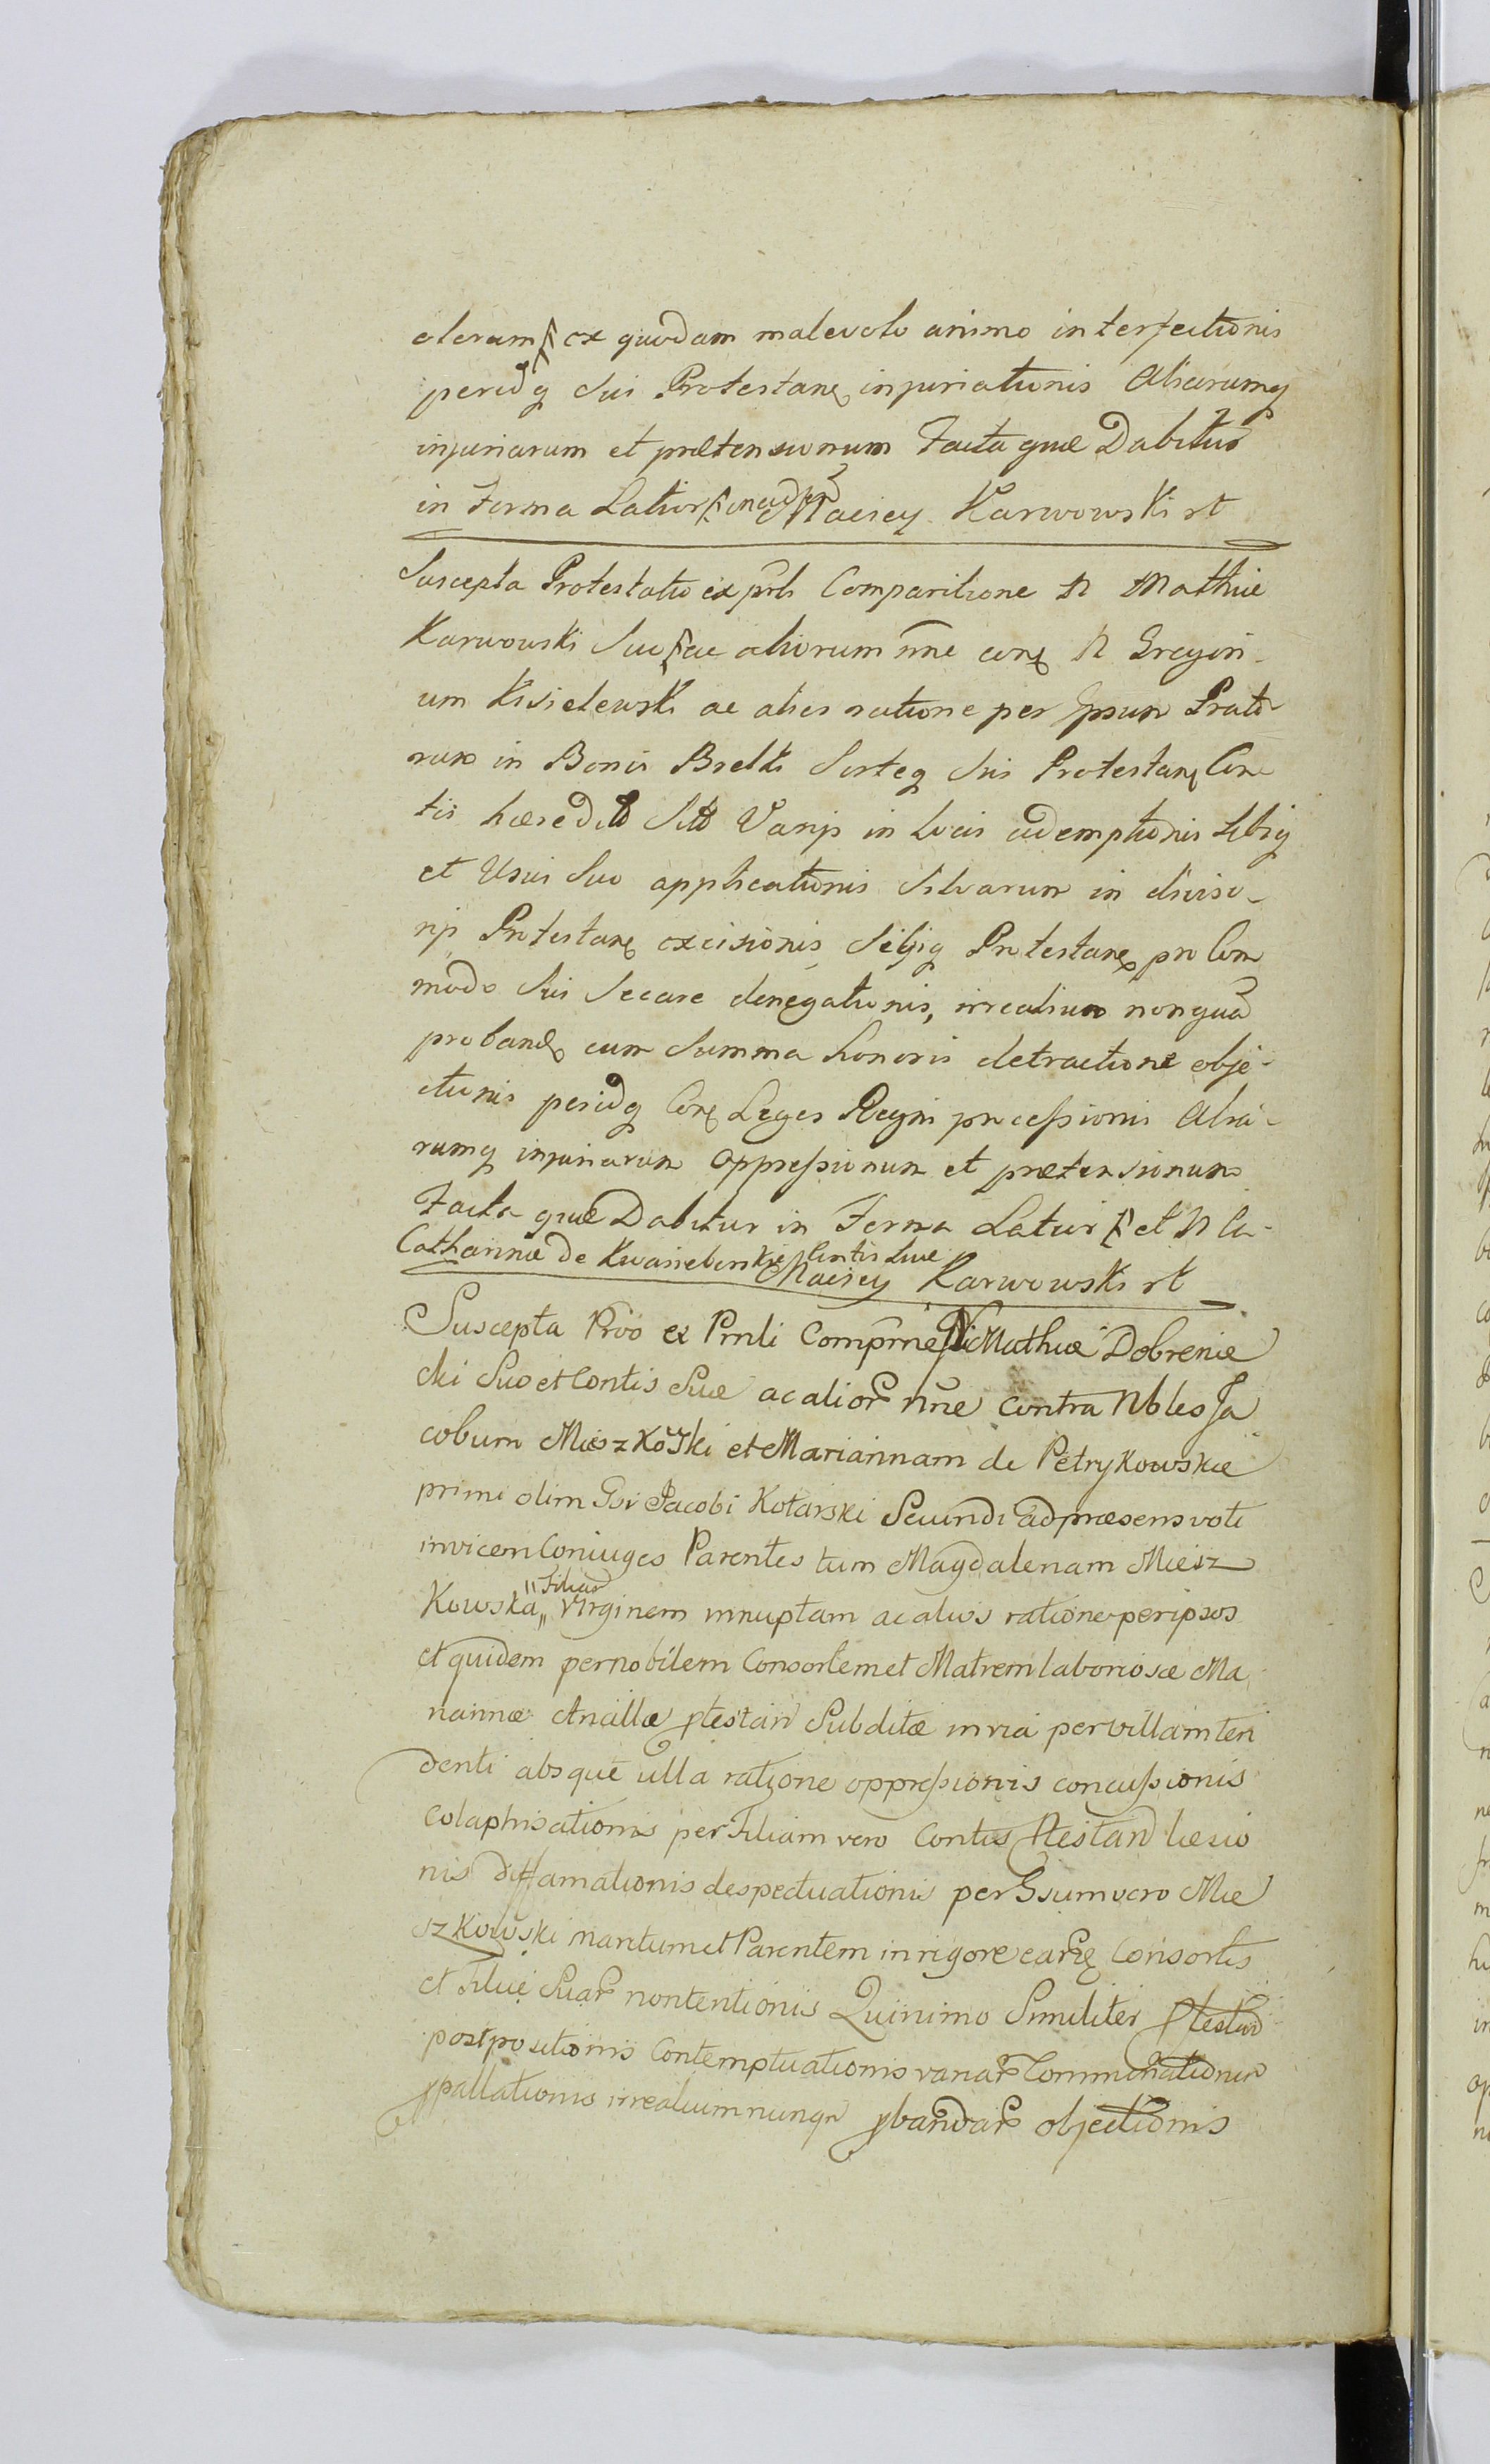 olerum ex quodam malevolo animo interfectionis
peridq Sui Protestanq injuriationis Aliarumq
injuriarum et prætensionum Facta quæ Dabitur
in Forma Latiori Maciey Karwowski rt
Suscepta Protestatio ex prli Comparitione N Mathiæ
Karwowski Suo ac aliorum nne conq N Gregori-
um Kisielewski ac alios ratione per Ipsum Prato-
rum in Bonis Bzelki Sorteq Sui Protestanq Con
tis hæredit Sitt Varijs in locis ademptionis Sibiq
et Usui Suo applicationis Silvarum in diviso-
rijs Protestanq excisionis Sibiq Protestanq pro Com
modo Sui Secare denegationis, irrealium nonquad
probandq cum Summa honoris detractione obje-
ctionis peridq Conq Leges Regni processionis Alia-
rumq injuriarum oppressionum et prætensionum
Facta quæ Dabitur in Forma Latiori et N Ca-
Catharinæ de Kwasieborskie Contis Suæ
Maciey Karwowski rt
Suscepta Prtto ex Prnli Comprne Ni Mathiæ Dobrenie
cki Suo et Contis Suæ ac alior nne contra Nbles Ja
cobum Mieszkoski et Mariannam de Petrykowskie
primi olim Gsi Jacobi Kotarski Secundi ad præsens voti
invicem Coniuges Parentes tum Magdalenam Miesz
Kowska Filiam Virginem innuptam ac alios ratione per ipsos
et quidem per nobilem Consortem et Matrem laboriosæ Ma
riannæ Ancillæ Ptestan Subditæ in via per villam ten
denti absque ulla ratione oppressionis concussionis
colaphisationis per Filiam vero Contis Ptestand læsio
nis diffamationis despectuationis per Gsum vero Mie
szkowski maritum et Parentem in rigore earq Consortis
et Filiæ Suar nontentionis Quinimo Similiter Ptestand
postpositionis Contemptuationis variar Comminationum
ppallationis irrealium nunqn pbandar objectionis